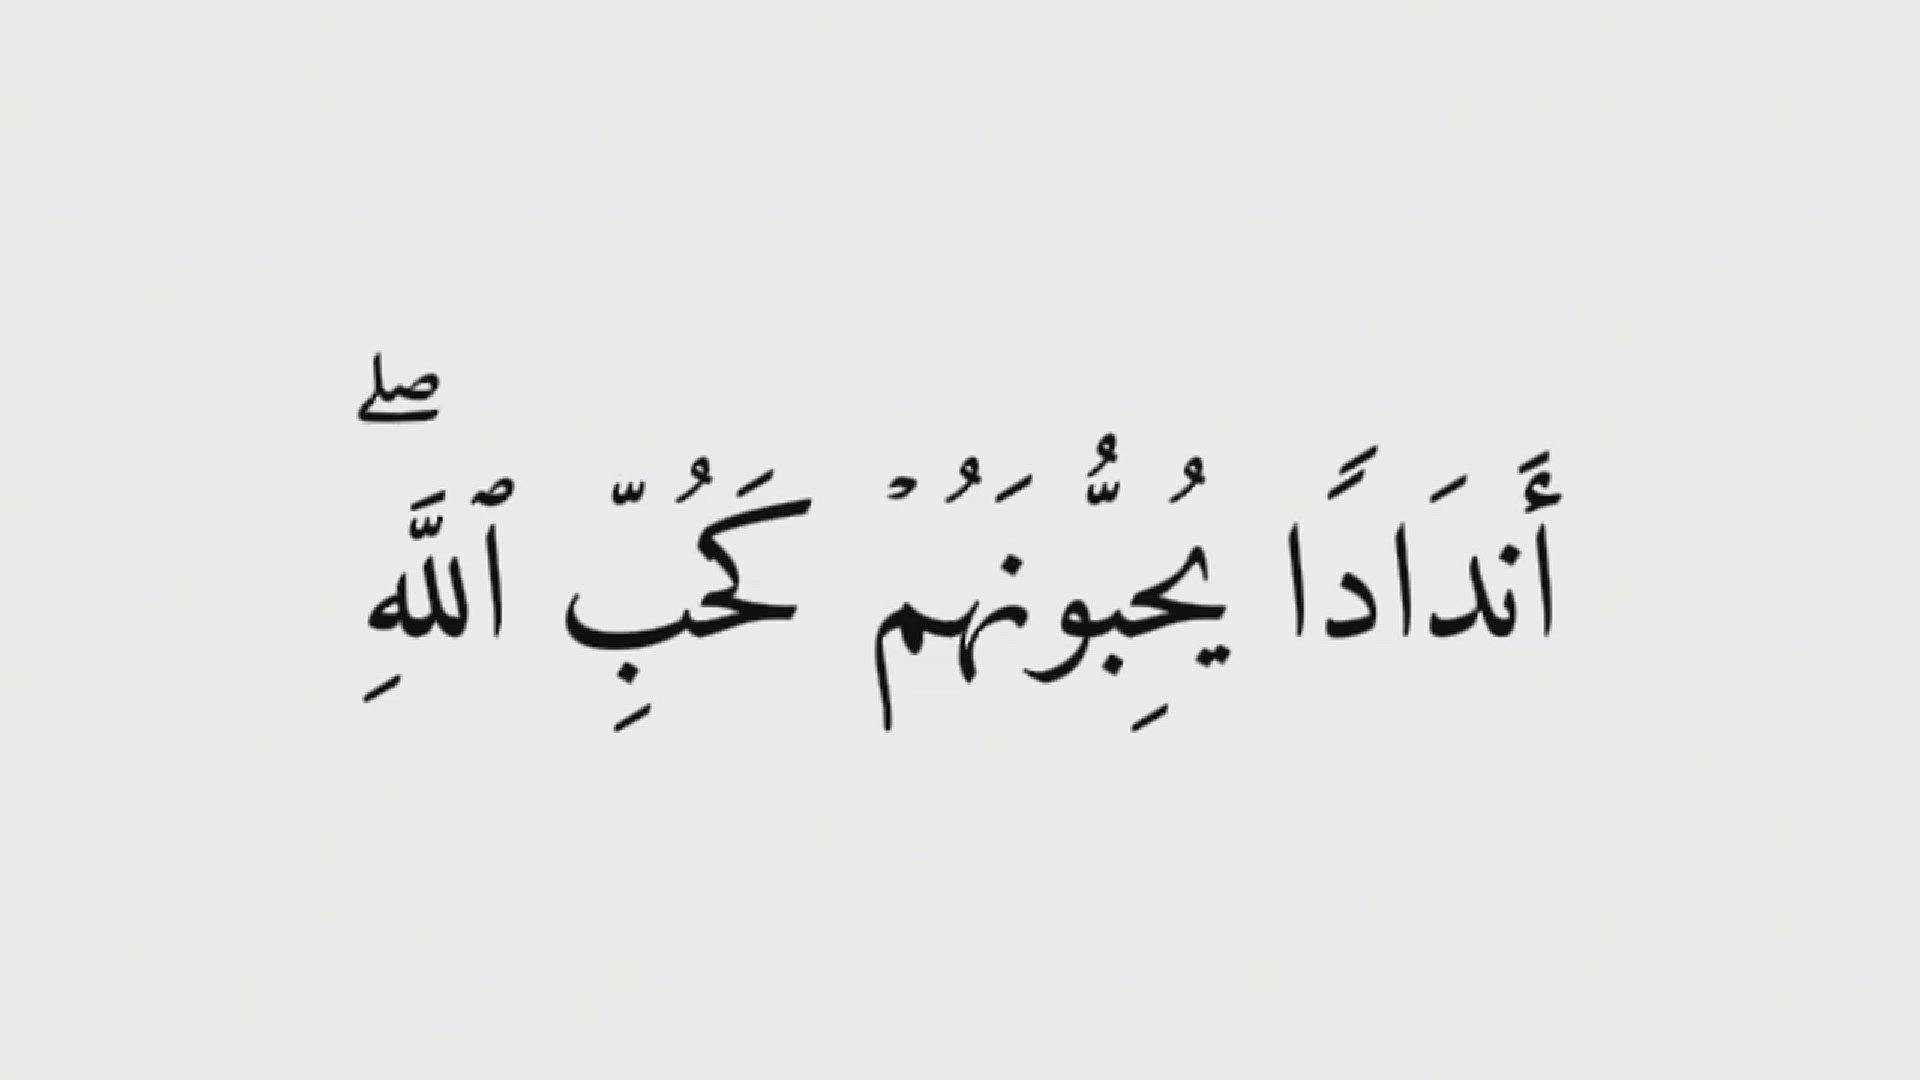 أَندَادًا يُحِبُّونَهُمۡ كَحُبِّ ٱللَّهِۖ